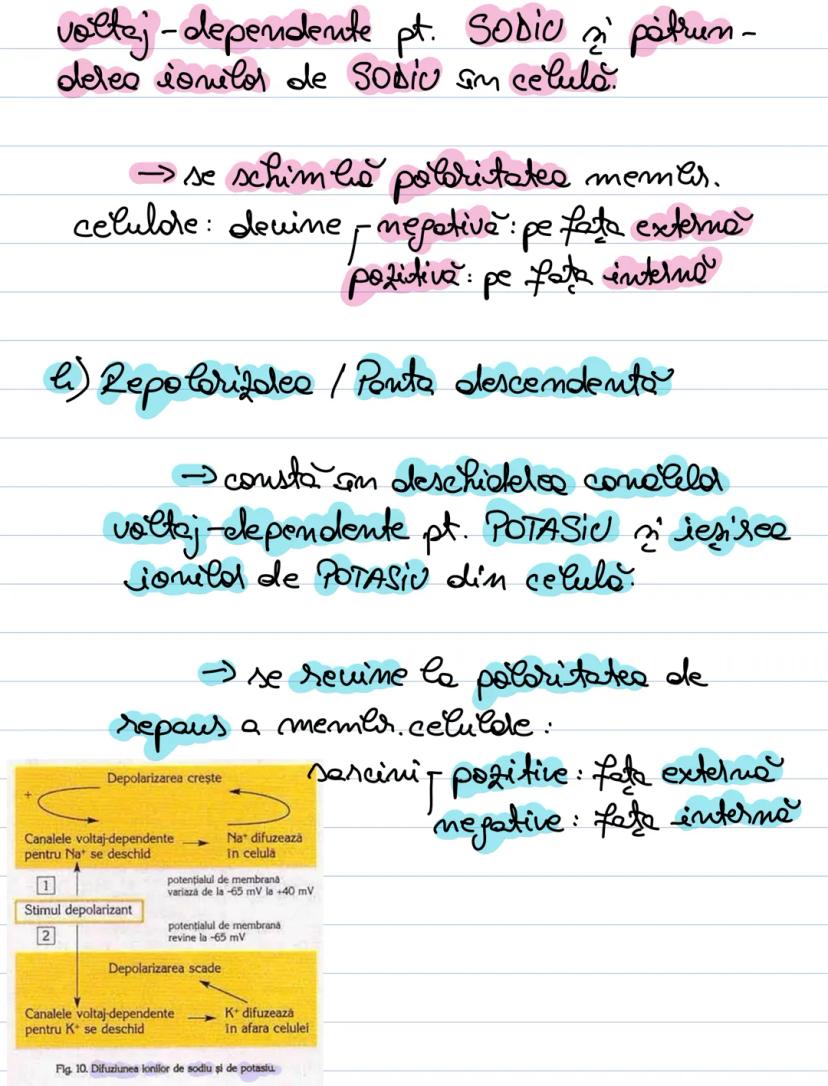 voltaj-dependente pt. SODIU și pătrun-
derea ionilor de SODIU în celulă.
→ se schimbă polaritatea membr.
celulare: devine negativă: pe fața externă
pozitivă: pe fața internă
b) Repolarizarea / Panta descendentă
→ constă în deschiderea canalelor
voltaj-dependente pt. POTASIU și ieșirea
ionilor de POTASIU din celulă.
→ se revine la polaritatea de
repaus a membr. celulare:
sarcini pozitive: fața externă
negative: fața internă
Depolarizarea crește
+
Canalele voltaj-dependente
pentru Na⁺ se deschid
Na⁺ difuzează
în celulă
1
potențialul de membrană
variază de la -65 mV la +40 mV
Stimul depolarizant
2
potențialul de membrană
revine la -65 mV
Depolarizarea scade
Canalele voltaj-dependente
pentru K⁺ se deschid
K⁺ difuzează
în afara celulei
Fig. 10. Difuziunea ionilor de sodiu și de potasiu.